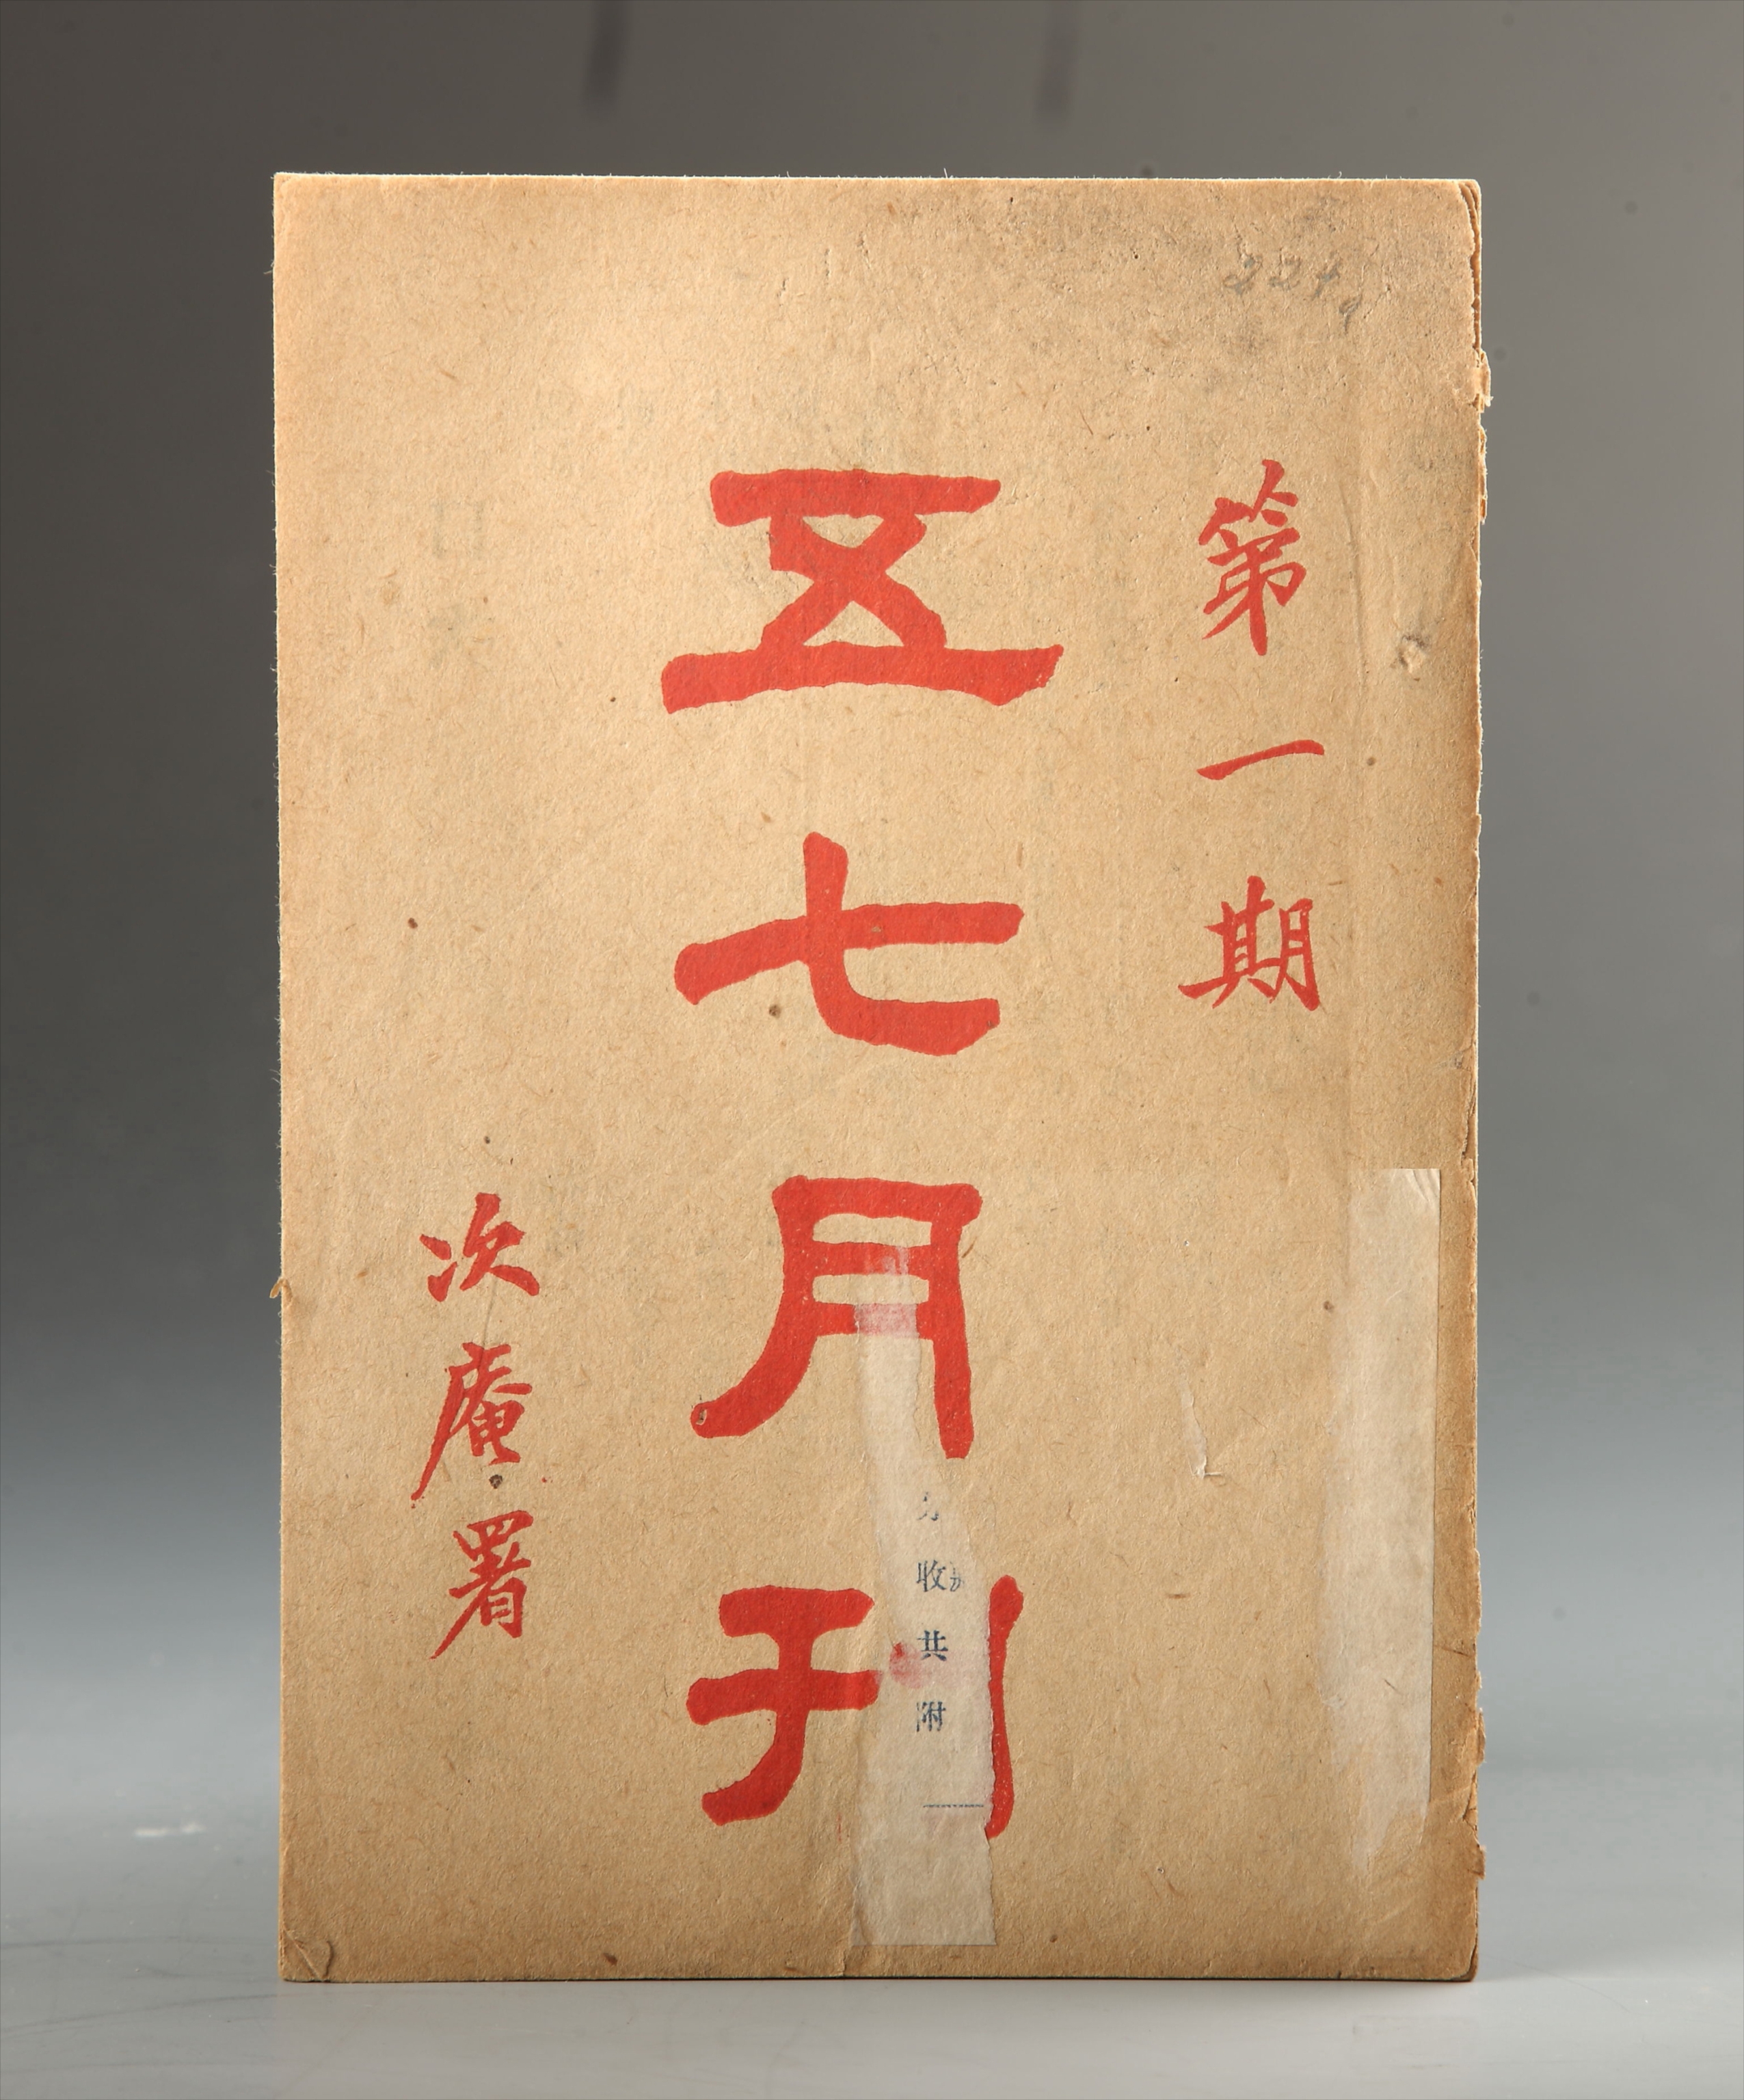 第一期
五七月刊
次庵署
收共附